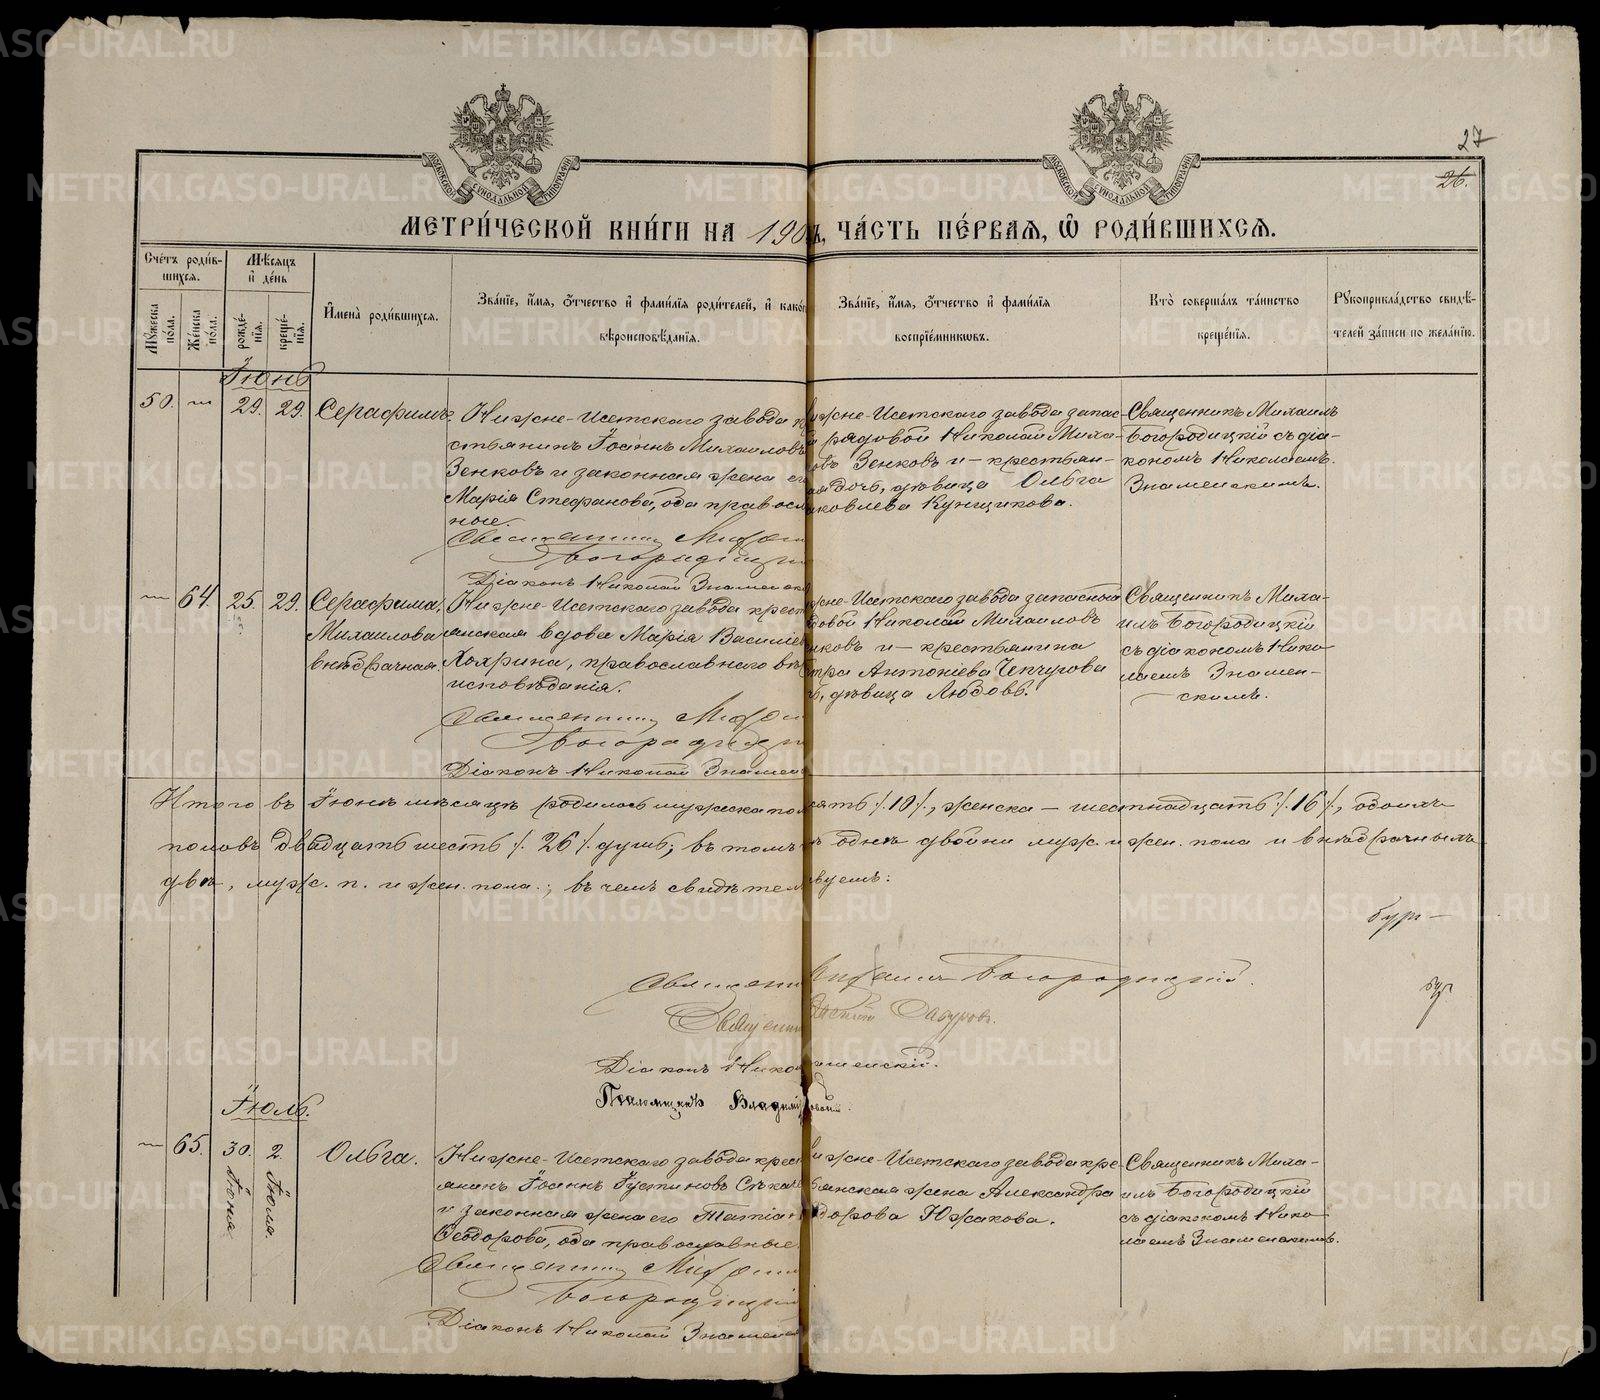 27
26.
МЕТРИ́ЧЕСКОЙ КНИ́ГИ НА 190 Ъ, ЧА́СТЬ ПЕ́РВАЯ, Ѿ РОДИ́ВШИХСЯ.
Сче́тъ роди́в-
шихся.
Мѣсяцъ
и҆ де́нь
Мꙋжеска по́ла.
Же́нска по́ла.
рожде́-
нїя.
креще́-
нїя.
И҆мена̀ роди́вшихся.
Зва́нїе, и҆́мя, ѻ҆́тчество и҆ фами́лїя роди́телей, и҆ како́
вѣроисповѣ́данїя.
Зва́нїе, и҆́мя, ѻ҆́тчество и҆ фами́лїя
воспрїе́мниковъ.
Кто̀ соверша́лъ та́инство
креще́нїя.
Рꙋкоприкла́дство свидѣ́-
телей за́писи по жела́нїю.
Іюнь
50. — 29. 29. Серафимъ.
Нижне-Исетскаго завода к
стьянинъ Іоаннъ Михаиловъ
Зенковъ и законная жена е
Марія Стефанова, оба правосл
ные.
Священникъ Миха
Богородицк
Діаконъ Николай Знаменск
жне-Исетскаго завода запас-
й рядовой Николай Миха-
овъ Зенковъ и – крестьян-
ая дочь, дѣвица Ольга
яковлева Кунщикова.
Священникъ Михаилъ
Богородицкій съ діа-
кономъ Николаемъ
Знаменскимъ.
— 64. 25. 29. Серафима,
Михаилова
внѣбрачная.
Нижне-Исетскаго завода крест
янская вдова Марія Василіев
Хохрина, православнаго вѣр
исповѣданія.
Священникъ Миха
Богородицк
Діаконъ Николай Знамен
жне-Исетскаго завода запасной
довой Николай Михаиловъ
нковъ и – крестьянина
тра Антоніева Чепчугова
ь, дѣвица Любовь.
Священникъ Миха-
илъ Богородицкій
съ діакономъ Нико-
лаемъ Знамен-
скимъ.
Итого въ Іюнѣ мѣсяцѣ родилось мужеска пол ять /.10/., женска – шестнадцать /.16/., обоихъ
половъ двадцать шесть /.26/. душъ; въ томъ ѣ однѣ двойни муж. и жен. пола и внѣбрачныхъ
двѣ, муж. п. и жен. пола.; въ чемъ свидѣтел вуемъ:
Священн Михаилъ Богородицкій.
Священн
Діаконъ Нико аменскій.
Псаломщикъ Владимі
Іюль.
— 65. 30. Іюня 2. Іюля. Ольга.
Нижне-Исетскаго завода крес
янинъ Іоаннъ Іустиновъ
и законная жена его Татіан
Ѳеодорова, оба православные
Священникъ Миха
Богородицкій
Діаконъ Николай Знаменск
ижне-Исетскаго завода кре-
ьянская жена Александра
дорова Южакова.
Священникъ Миха-
илъ Богородицкій
съ діакономъ Нико-
лаемъ Знаменскимъ.
METRIKI.GASO-URAL.RU